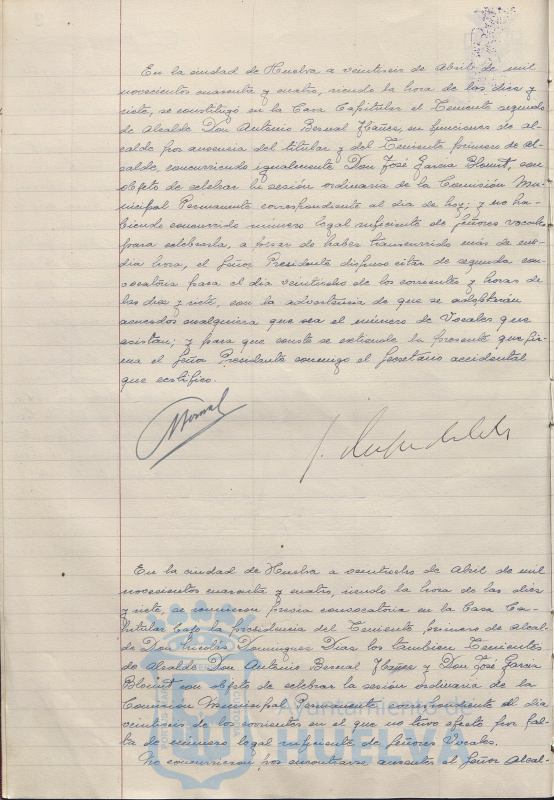 En la ciudad de Huelva a veintiseis de Abril de mil
novecientos cuarenta y cuatro, siendo la hora de las diez y
siete, se constituyó en la Casa Capitular el Teniente segundo
de Alcalde Don Antonio Bernal Ibañez, en funciones de al-
calde por ausencia del titular y del Teniente primero de al-
calde, concurriendo igualmente Don José Garcia Blount, con
objeto de celebrar la sesión ordinaria de la Comisión Mu-
nicipal Permanente correspondiente al dia de hoy; y no ha-
biendo concurrido número legal suficiente de Señores vocales
para celebrarla, a pesar de haber transcurrido más de me-
dia hora, el Señor Presidente dispuso citar de segunda con-
vocatoria para el dia veintiocho de los corrientes y horas de
las diez y siete, con la advertencia de que se adoptarán
acuerdos cualquiera que sea el número de Vocales que
asistan; y para que conste se extiende la presente que fir-
ma el Señor Presidente conmigo el Secretario accidental
que certifico.
Bernal
En la ciudad de Huelva a veintiocho de Abril de mil
novecientos cuarenta y cuatro, siendo la hora de las diez
y siete, se reunieron previa convocatoria en la Casa Ca-
pitular bajo la presidencia del Teniente primero de Alcal-
de Don Nicolás Dominguez Diaz los tambien Tenientes
de Alcalde Don Antonio Bernal Ibañez y Don José Garcia
Blount con objeto de celebrar la sesión ordinaria de la
Comisión Municipal Permanente correspondiente al dia
veintiseis de los corrientes en el que no tuvo efecto por fal-
ta de número legal suficiente de Señores Vocales.
No concurrieron por encontrarse ausentes el Señor Alcal-
Ayuntamiento de
HUELVA